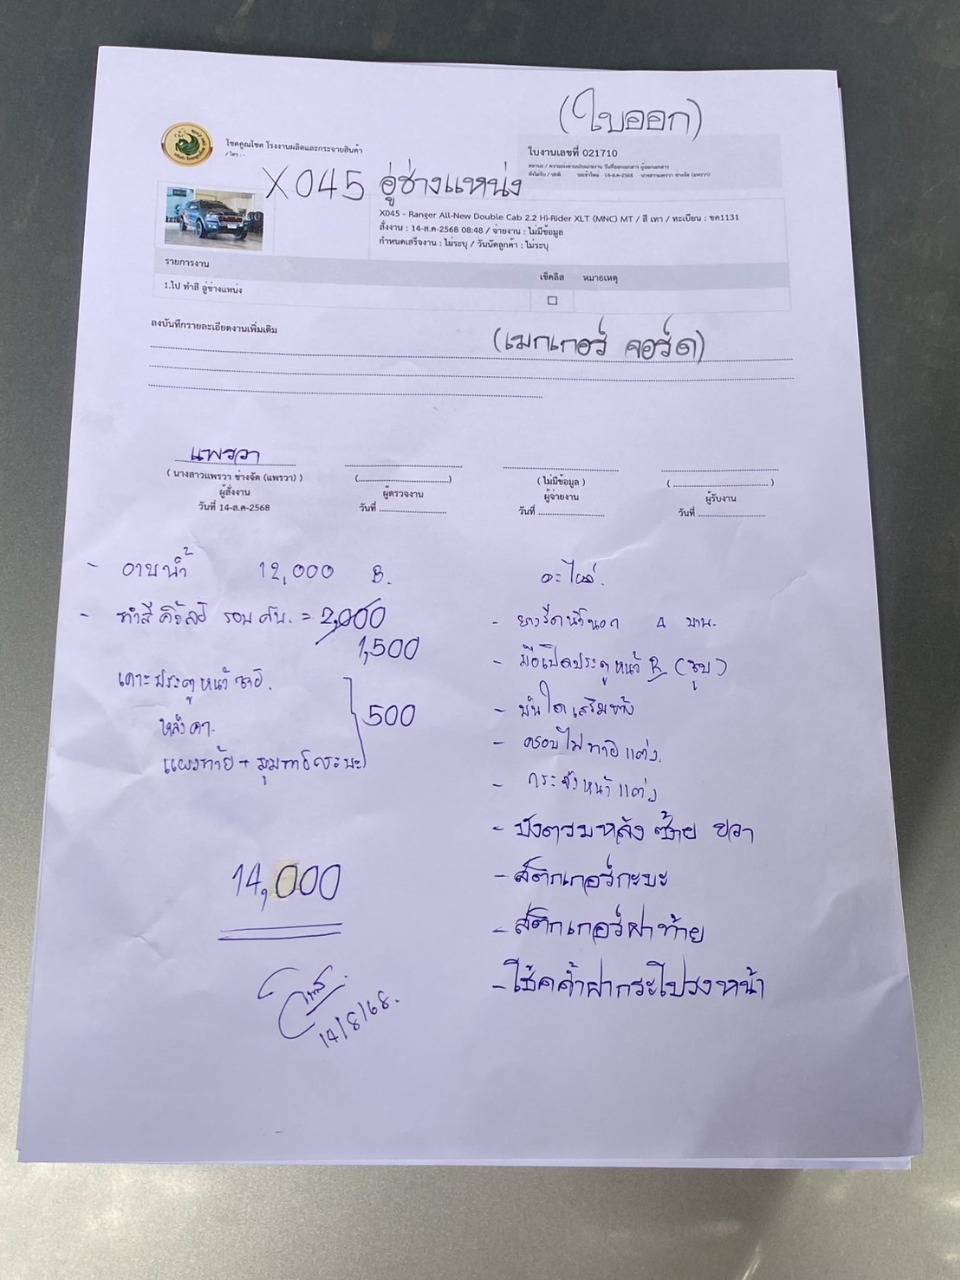 (ใบออก)
โชคคูณโชค โรงงานผลิตและกระจายสินค้า
/ โทร : -
ใบงานเลขที่ 021710
X045 อู่ช่างแหน่ง
X045 - Ranger All-New Double Cab 2.2 Hi-Rider XLT (MNC) MT / สี เทา / ทะเบียน : ขค1131
สั่งงาน : 14-ส.ค-2568 08:48 / จ่ายงาน : ไม่มีข้อมูล
กำหนดเสร็จงาน : ไม่ระบุ / วันนัดลูกค้า : ไม่ระบุ
รายการงาน เช็คลิส หมายเหตุ
1.ไป ทำสี อู่ช่างแหน่ง
ลงบันทึกรายละเอียดงานเพิ่มเติม
(เมกเกอร์ จอร์ด)
แพรวา
( นางสาวแพรวา ช่างจัด (แพรวา) ) ( ไม่มีข้อมูล )
ผู้สั่งงาน ผู้ตรวจงาน ผู้จ่ายงาน ผู้รับงาน
วันที่ 14-ส.ค-2568 วันที่ วันที่ วันที่
- อาบน้ำ 12,000 B.
- ทำสี คิ้วล้อ รอบคัน. = 2,000
1,500
เคาะประตูหน้าซ้าย.
หลังคา.
500
แผงท้าย + มุมท้ายกระบะ
14,000
14/8/68.
อะไหล่.
- ยางรีดน้ำนอก 4 บาน.
- มือเปิดประตูหน้า R (ชุบ)
- บันไดเสริมข้าง
- ครอบไฟท้ายแต่ง.
- กระจังหน้าแต่ง
- บังตรมหลัง ซ้าย ขวา
- สติกเกอร์กะบะ
- สติกเกอร์ฝาท้าย
- โช้คค้ำฝากระโปรงหน้า